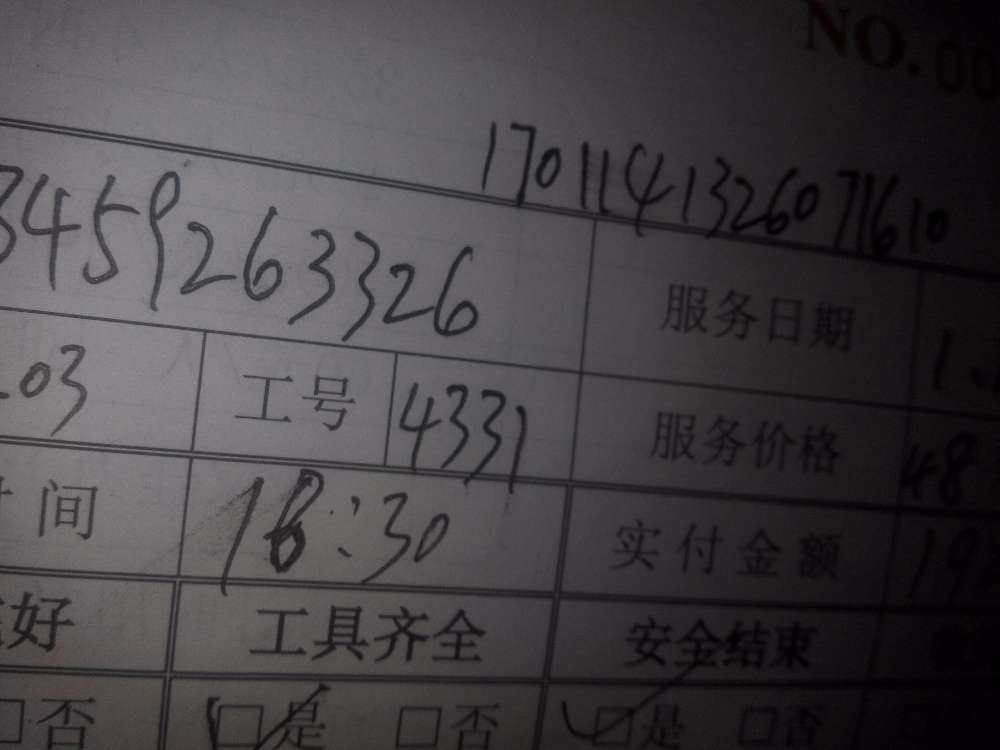 NO.00
1701141326071610
3459263326 服务日期 1.
.03 工号 4331 服务价格 48
间 18:30 实付金额 19
好 工具齐全 安全结束
□否 □是 □否 □是 □否